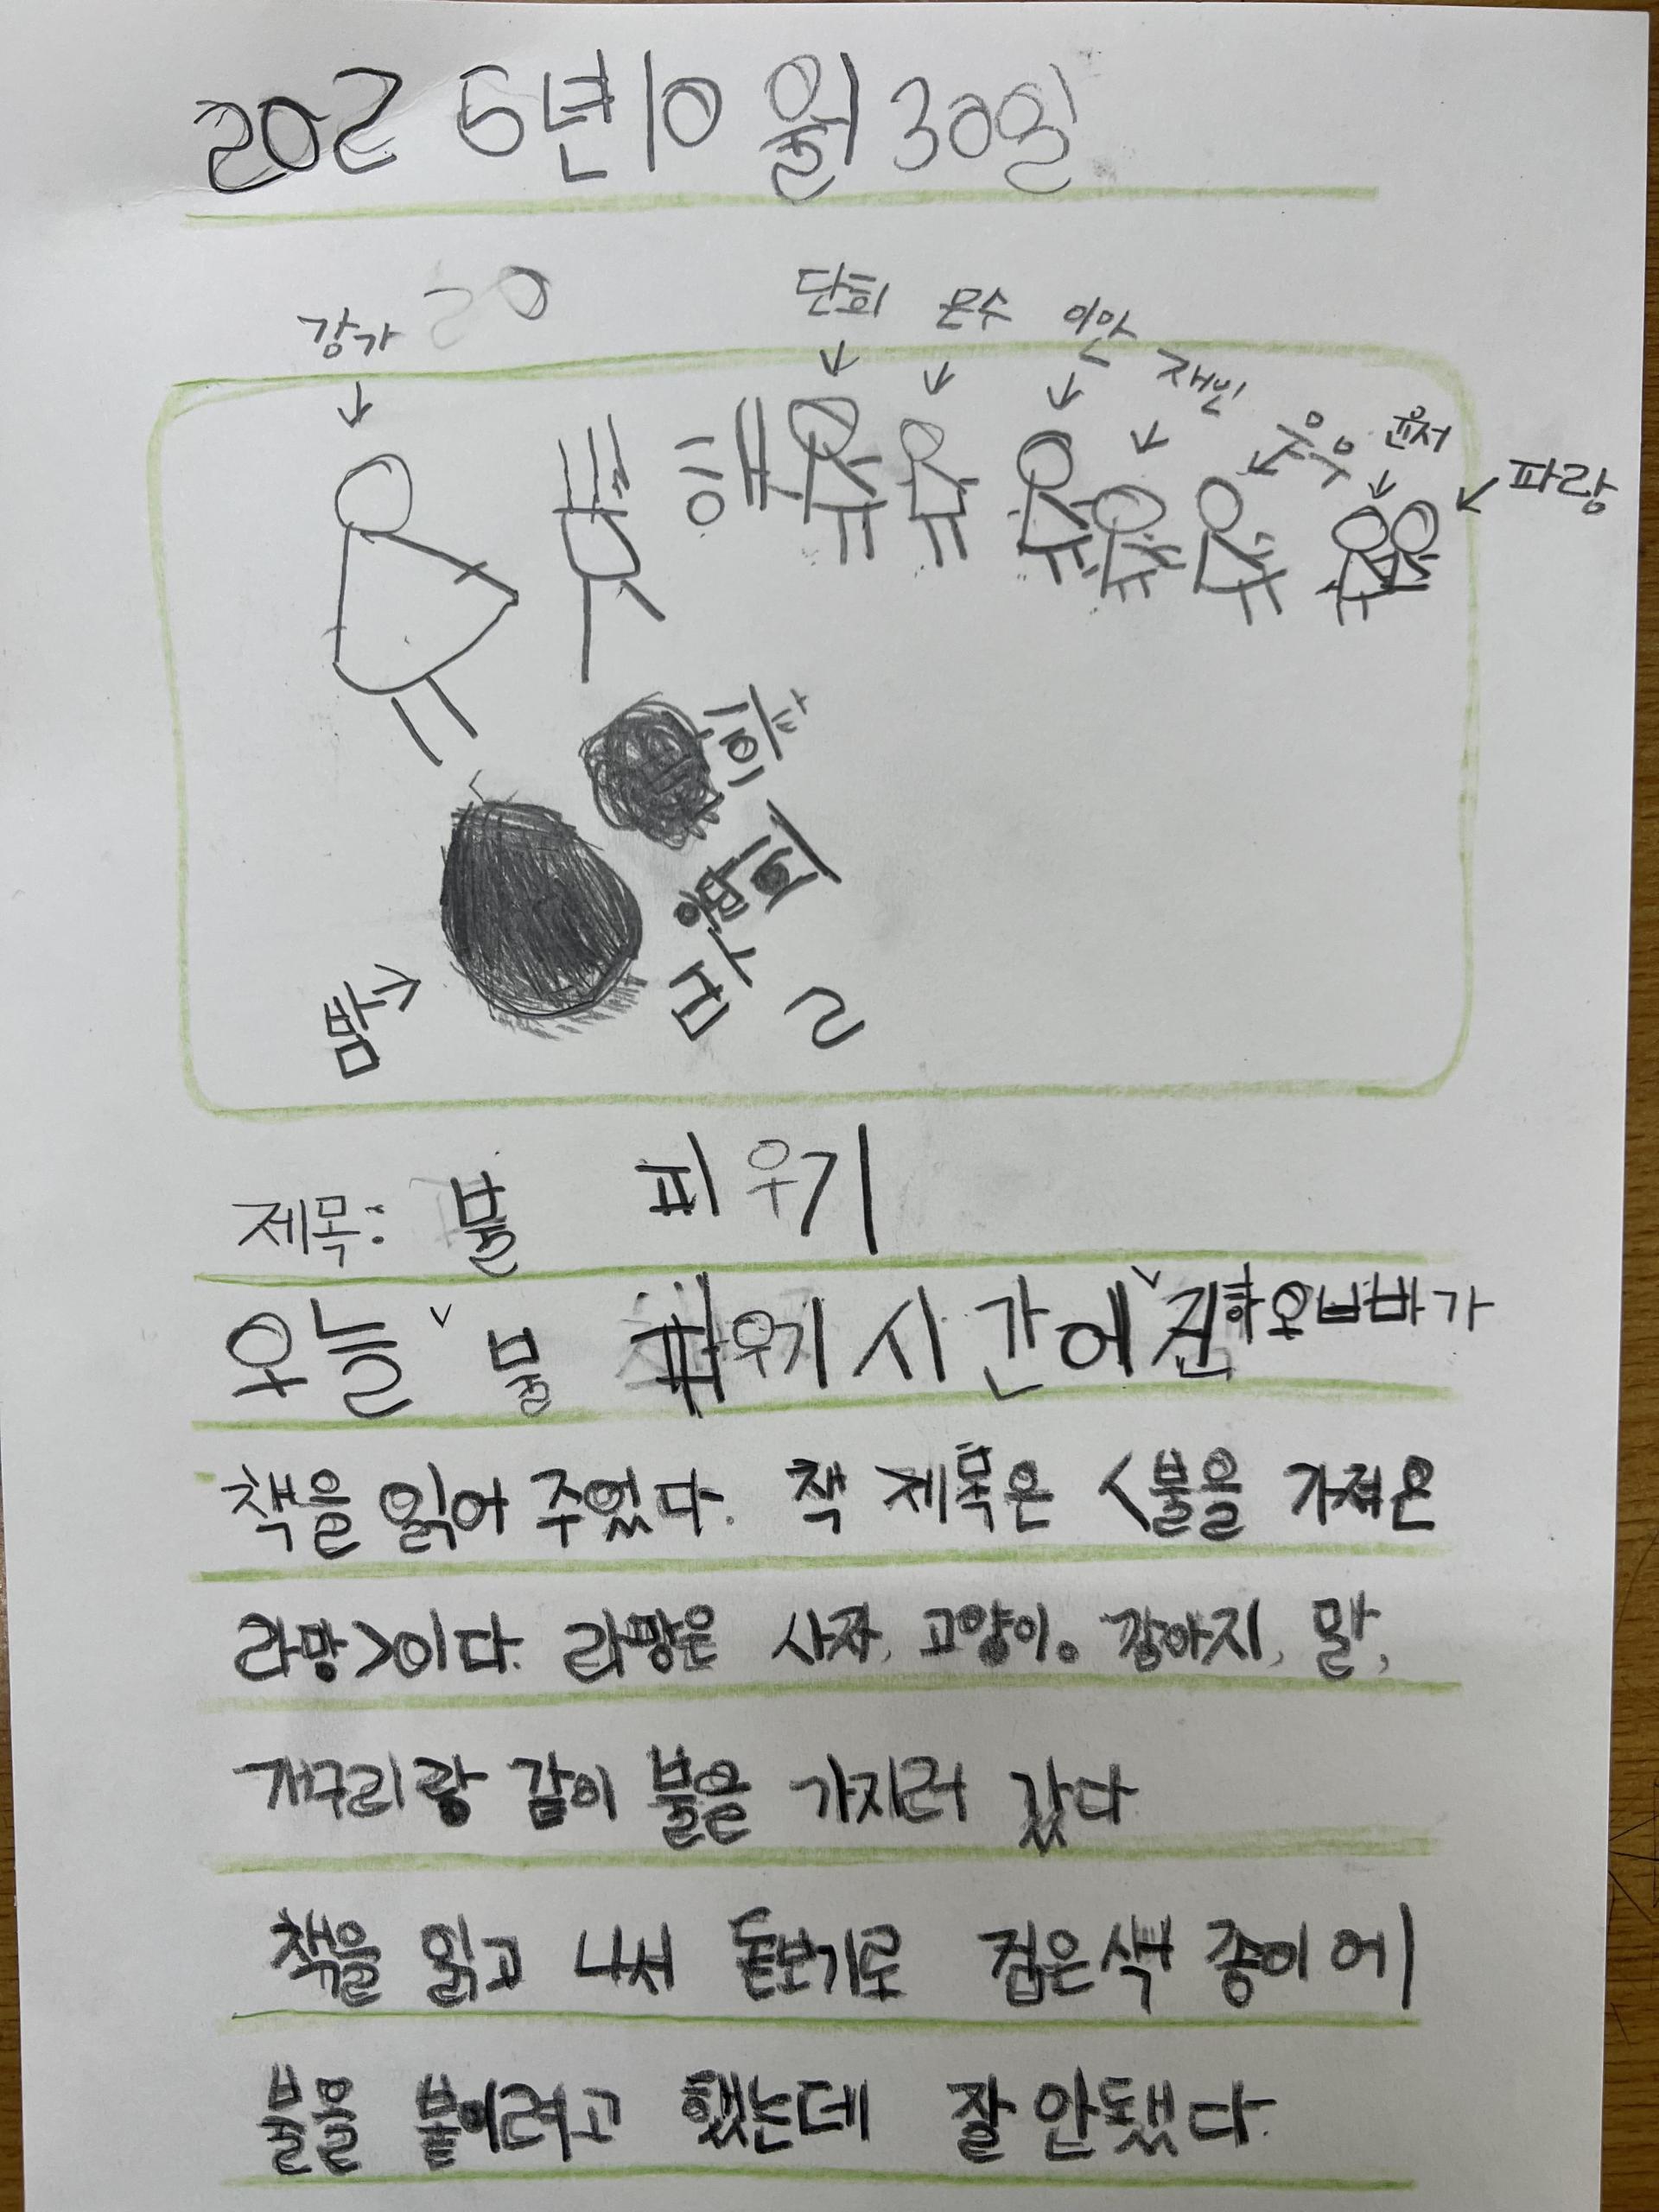 2025년 10월 30일
강가 20
단희 은수 이안 재빈 윤서 파랑
제목: 불 피우기
오늘 불 피우기 시간에 건하오빠가
책을 읽어 주었다. 책 제목은 <불을 가져온
라망>이다. 라망은 사자, 고양이. 강아지, 말,
개구리랑 같이 불을 가지러 갔다
책을 읽고 나서 돋보기로 검은색 종이에
불을 붙이려고 했는데 잘 안됐다.